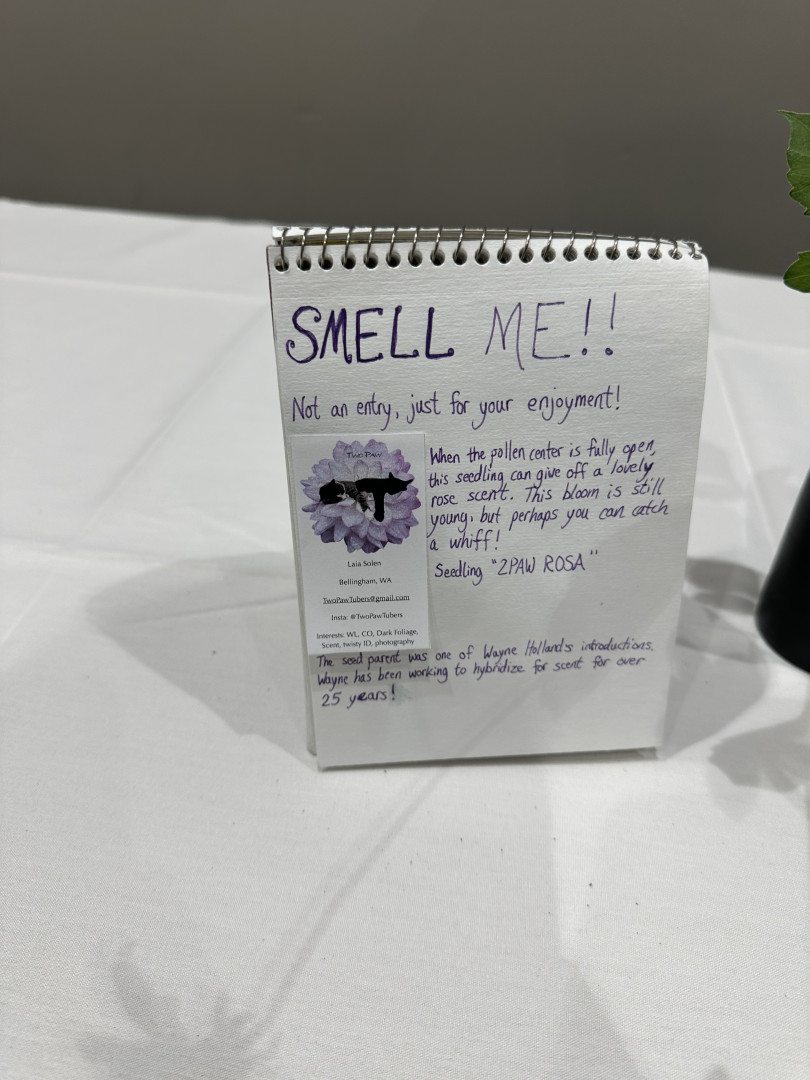 SMELL ME!!
Not an entry, just for your enjoyment!
When the pollen center is fully open,
this seedling can give off a lovely
rose scent. This bloom is still
young, but perhaps you can catch
a whiff!
Seedling "2PAW ROSA"
Two Paw
Laia Solen
Bellingham, WA
TwoPawTubers@gmail.com
Insta: @TwoPawTubers
Interests: WL, CO, Dark Foliage,
Scent, twisty ID, photography
The seed parent was one of Wayne Holland's introductions.
Wayne has been working to hybridize for scent for over
25 years!